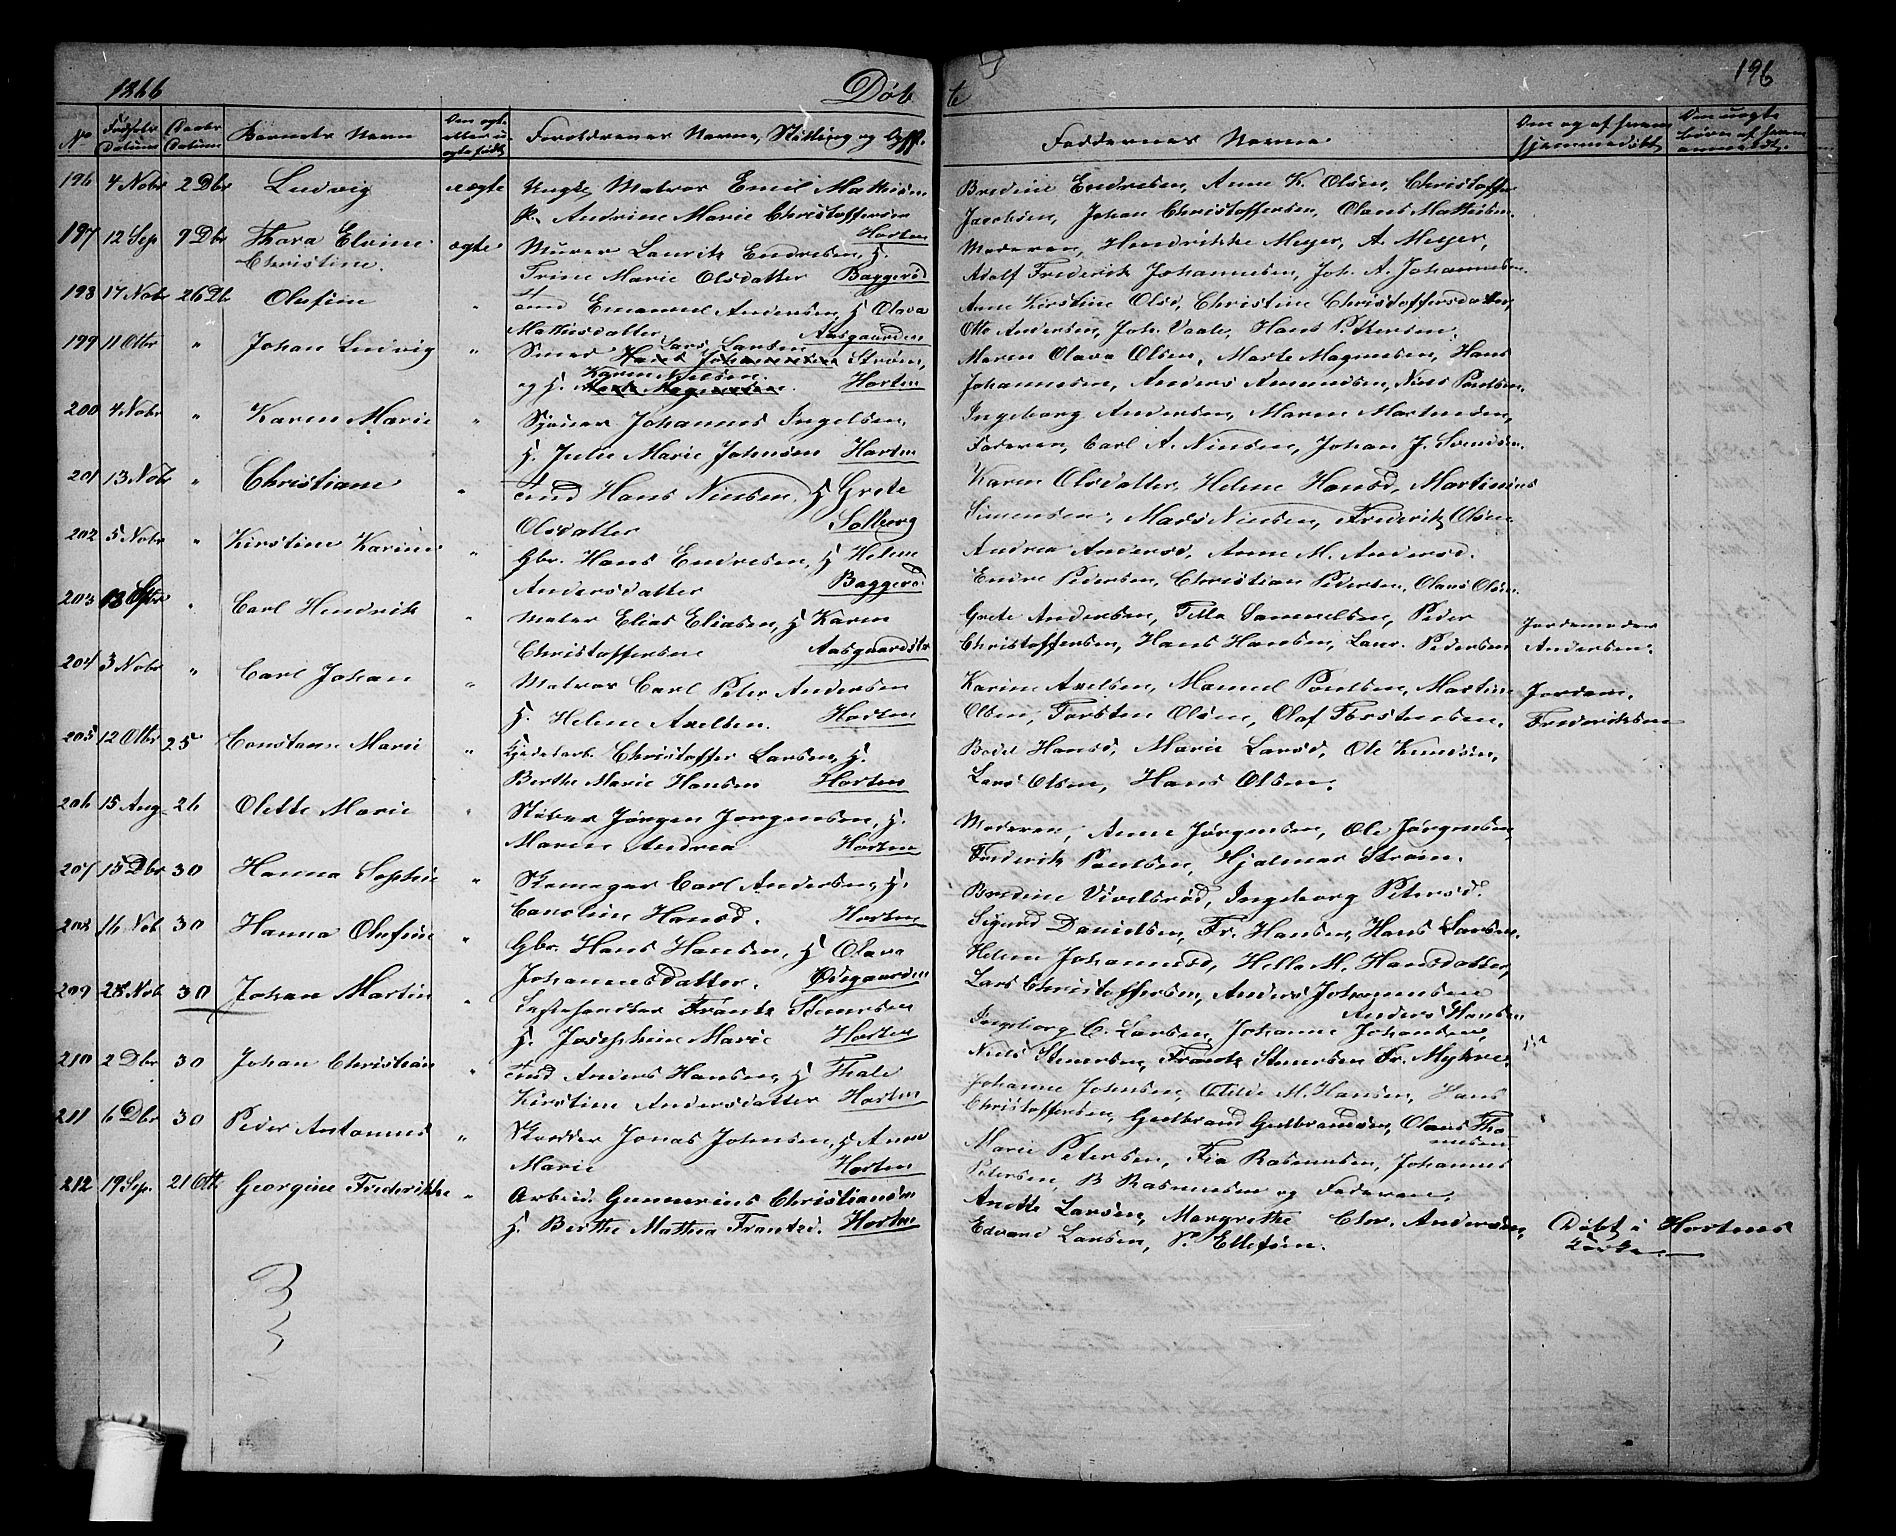 1866 Døb
te 196
No Fødsels Datum Daabs Datum Barnets Navn Om ægte eller uægte født Forældrenes Navne, Stilling og
196 4 Nobr 2 Dbr Ludvig uægte Ungk. Matros Emil Mathisen
P. Andrine Marie Christoffersen Horten
197 12 Sep 9 Dbr Thora Elvine ægte Murer Laurits Endresen, H.
Christine. Trine Marie Olsdatter Baggerød
198 17 Nobr 26 Db Olufine " Emanuel Andersen, H Olava
Mathisdatter Aasgaarden
199 11 Otbr " Johan Ludvig " Smed Lars Larsen Strøm,
og H. Karen Nielsen. Horten
200 4 Nobr " Karen Marie " Johannes Ingelsen,
H. Julie Marie Johnsen Horten
201 13 Nobr " Christiane " Hans Nielsen, H Grete
Olsdatter Solberg
202 5 Nobr " Kirstine Karine " Gbr. Hans Endresen, H Helene
Andersdatter Baggerød
203 " Carl Hendrik " Maler Elias Eliasen, H Karen
Christoffersen Aasgaardstr
204 3 Nobr " Carl Johan " Matros Carl Peter Andersen
H. Helene Axelsen. Horten
205 12 Otbr 25 Constanse Marie " Christoffer Larsen, H.
Berthe Marie Hansen Horten
206 15 Aug 26 Olette Marie " Jørgen Jørgensen, H.
Maren Andrea Horten
207 15 Dbr 30 Hanna Sophie " Skomager Carl Andersen, H.
Hansd. Horten
208 16 Nob 30 Hanna Olufine " Gbr. Hans Hansen, H Olava
Johannesdatter. Ødegaarden
209 28 Nob 30 Johan Martin " Frantz Stenersen
H. Josephine Marie Horten
210 2 Dbr 30 Johan Christian " Anders Hansen, H Thale
Kirstine Andersdatter Horten
211 6 Dbr 30 Peder Antonius " Skrædder Jonas Johnsen, H Anne
Marie Horten
212 19 Sep. 21 Otb Georgine Frederikke " Arbeid. Gunnerius Christiansen
H. Berthe Mathea Frantsd. Horten
Faddernes Navne Om og af hvem hjemmedøbt Om uægte børn af hvem anmeldt.
Bredine Endresen, Anne K. Olsen, Christoffer
Jacobsen, Johan Christoffersen, Olaus Mathisen.
Moderen, Hendrikke Meyer, A. Meyer,
Adolf Frederik Johannesen, Joh. A. Johannesen.
Anne Kirstine Olsd, Christine Christoffersdatter,
Otto Andersen, Joh. Vaale, Hans Pettersen.
Maren Olava Olsen, Marte Magnusen, Hans
Johannesen, Anders Amundsen, Niels Poulsen.
Ingeborg Andersen, Maren Mortensen,
Faderen, Carl A. Nielsen, Johan J. Svendsen.
Karen Olsdatter, Helene Hansd, Martinius
Simensen, Mads Nielsen, Frederik Olsen
Andrea Andersd, Anne M. Andersd.
Endre Pedersen, Christian Pedersen, Olaus Olsen
Grete Andersen, Tilla Samuelsen, Peder Jordemoder
Christoffersen, Hans Hansen, Laur. Pedersen Andersen.
Karine Axelsen, Manuel Poulsen, Martin Jordem.
Olsen, Torsten Olsen, Olaf Torstensen. Frederiksen
Bodel Hansd, Marie Larsd, Ole Knudsen,
Lars Olsen, Hans Olsen.
Moderen, Anne Jørgensen, Ole Jørgensen,
Frederik Poulsen, Hjalmar Strøm.
Bredine Vivelsrød, Ingeborg Petersd.
Sigurd Danielsen, Fr. Hansen, Hans Larsen.
Helene Johannesd, Hella M. Hansdatter,
Lars Christoffersen, Anders Johannesen
Anders Hansen
Ingeborg C. Larsen, Johanne Johansen,
Niels Stenersen, Frantz Stenersen Fr. Myhre.
Johanne Johnsen, Otilde M. Hansen, Hans
Christoffersen, Gudbrand Gudbrandsen, Olaus Tho
mesen
Marie Petersen, Fia Rasmusen, Johannes
Petersen, B Rasmusen og Faderen.
Anette Larsen, Margrethe Chr. Andersen,
Edvard Larsen, P. Ellefsen. Døbt i Hortens
Kirke